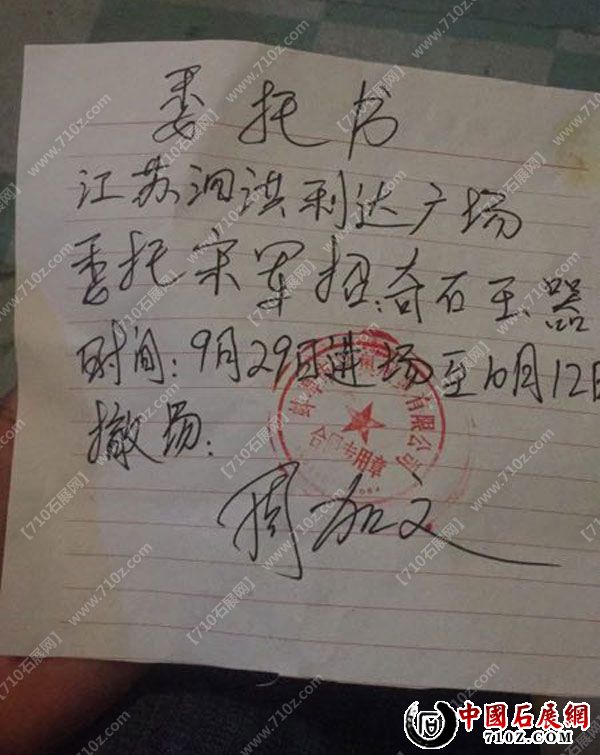 委托书
江苏泗洪利达广场
委托宋军招:奇石玉器
时间:9月29日进场至10月12日
撤场:
有限公司
合同专用章
周加文
【710石展网】
www.710z.com
中國石展網
710Z.COM